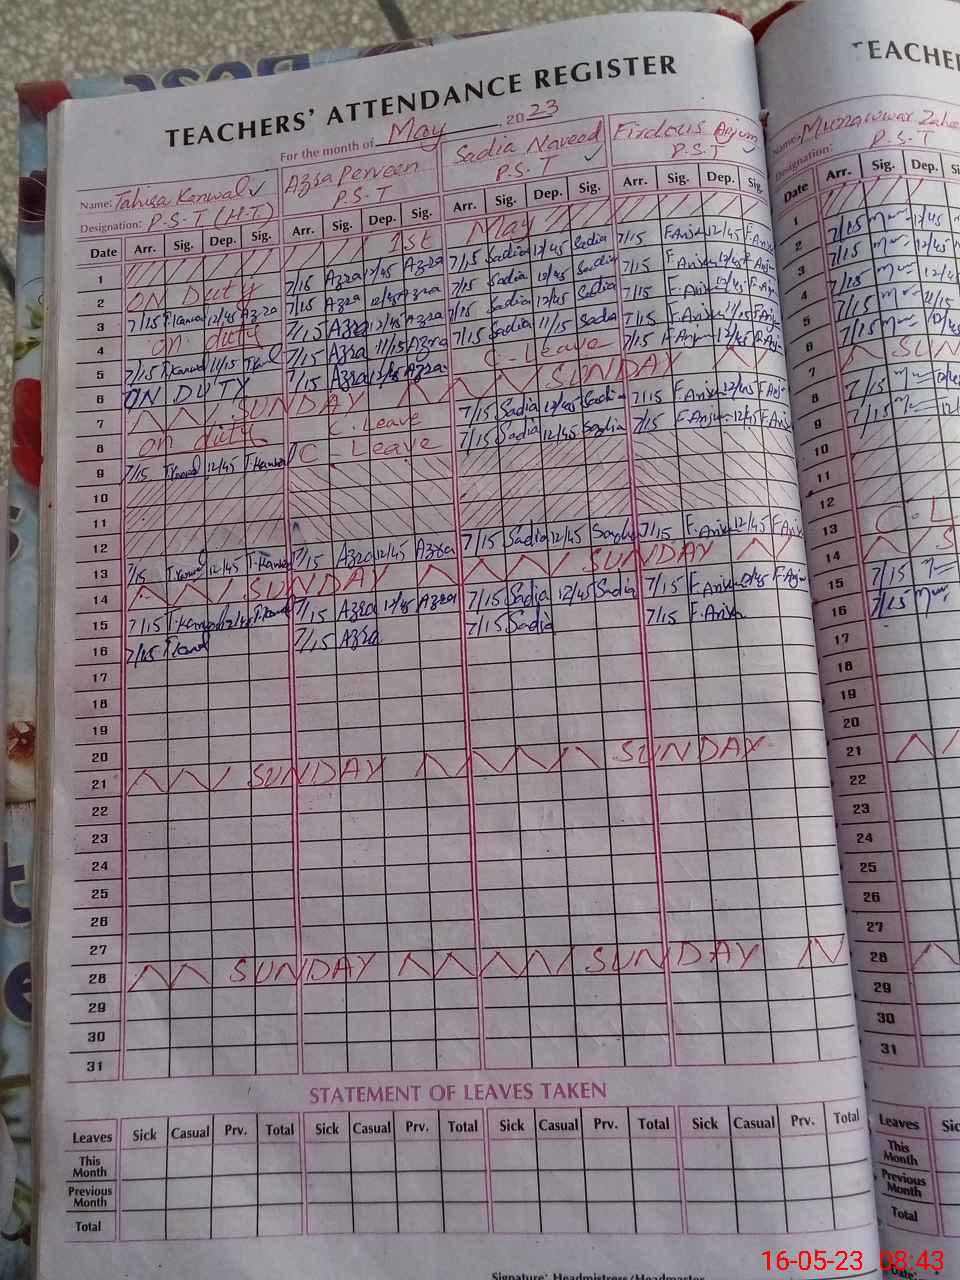 TEACHERS' ATTENDANCE REGISTER
For the month of May, 2023
Name: Tahira Kanwal ✓ Azra Perveen Sadia Naveed ✓ Firdous Anjum ✓
Designation: P.S.T (H.T) P.S.T P.S.T P.S.T
Date Arr. Sig. Dep. Sig. Arr. Sig. Dep. Sig. Arr. Sig. Dep. Sig. Arr. Sig. Dep. Sig.
1 1st May
2 ON Duty 7/15 Azra 12/45 Azra 7/15 Sadia 12/45 Sadia 7/15 F.Anjum 12/45 F.Anjum
3 7/15 T.Kanwal 12/45 Azra 7/15 Azra 12/45 Azra 7/15 Sadia 12/45 Sadia 7/15 F.Anjum 12/45 F.Anjum
4 on duty 7/15 Azra 12/45 Azra 7/15 Sadia 12/45 Sadia 7/15 F.Anjum 12/45 F.Anjum
5 7/15 T.Kanwal 11/15 T.Kanwal 7/15 Azra 11/15 Azra 7/15 Sadia 11/15 Sadia 7/15 F.Anjum 11/15 F.Anjum
6 ON DUTY 7/15 Azra 12/45 Azra C-Leave 7/15 F.Anjum 12/45
7 SUNDAY SUNDAY
8 on duty C.Leave 7/15 Sadia 12/45 Sadia 7/15 F.Anjum 12/45 F.Anjum
9 7/15 T.Kanwal 12/45 T.Kanwal C-Leave 7/15 Sadia 12/45 Sadia 7/15 F.Anjum 12/45 F.Anjum
10
11
12
13 7/15 T.Kanwal 12/45 T.Kanwal 7/15 Azra 12/45 Azra 7/15 Sadia 12/45 Sadia 7/15 F.Anjum 12/45 F.Anjum
14 SUNDAY SUNDAY
15 7/15 T.Kanwal 12/45 T.Kanwal 7/15 Azra 12/45 Azra 7/15 Sadia 12/45 Sadia 7/15 F.Anjum 12/45 F.Anjum
16 7/15 T.Kanwal 7/15 Azra 7/15 Sadia 7/15 F.Anjum
17
18
19
20
21 SUNDAY SUNDAY
22
23
24
25
26
27
28 SUNDAY SUNDAY
29
30
31
STATEMENT OF LEAVES TAKEN
Leaves Sick Casual Prv. Total Sick Casual Prv. Total Sick Casual Prv. Total Sick Casual Prv. Total
This Month
Previous Month
Total
Signature: Headmistress/Headmaster
TEACHER
Name: Munawwar
Designation: P.S.T
Date Arr. Sig. Dep.
1
2 7/15 12/45
3 7/15 12/45
4 7/15 12/45
5 7/15 11/15
6 7/15 12/45
7 SUN
8 7/15 12/45
9 7/15
10
11
12
13 C.L
14 S
15 7/15
16 7/15
17
18
19
20
21
22
23
24
25
26
27
28
29
30
31
Leaves
This Month
Previous Month
Total
16-05-23 08:43